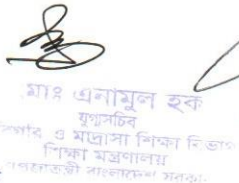 মোঃ এনামুল হক
যুগ্মসচিব
ও মাদ্রাসা শিক্ষা বিভাগ
শিক্ষা মন্ত্রণালয়
গণপ্রজাতন্ত্রী বাংলাদেশ সরকার